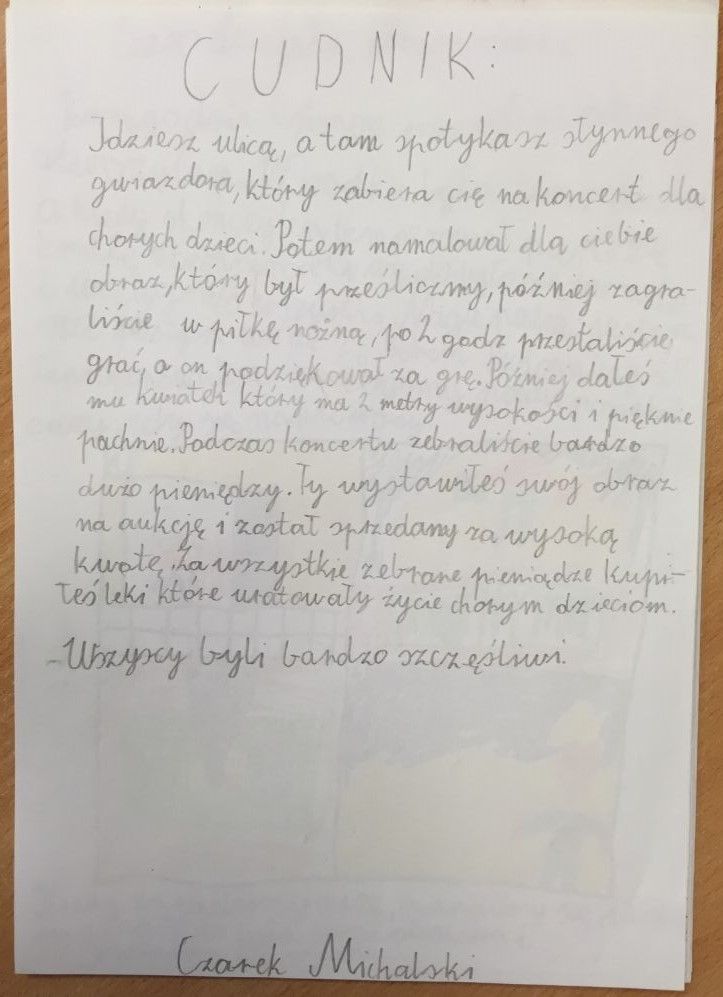 CUDNIK:
Idziesz ulicą, a tam spotykasz słynnego
gwiazdora, który zabiera cię na koncert dla
chorych dzieci. Potem namalował dla ciebie
obraz, który był prześliczny, później zagra-
liście w piłkę nożną, po 2 godz przestaliście
grać, a on podziękował za grę. Później dałeś
mu kwiatek który ma 2 metry wysokości i pięknie
pachnie. Podczas koncertu zebraliście bardzo
dużo pieniędzy. Ty wystawiłeś swój obraz
na aukcję i został sprzedany za wysoką
kwotę. Za wszystkie zebrane pieniądze kupi-
łeś leki które uratowały życie chorym dzieciom.
Wszyscy byli bardzo szczęśliwi.
Czarek Michalski